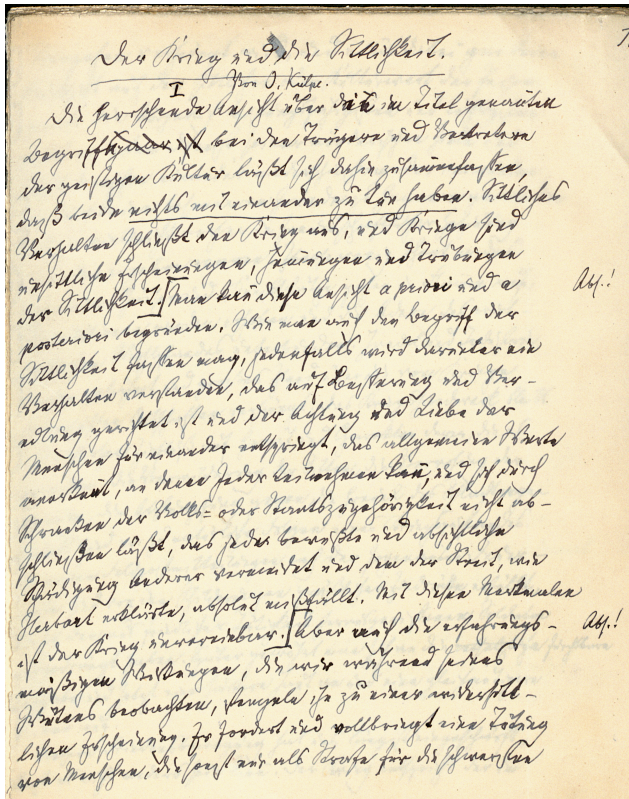 Der Krieg und die Sittlichkeit.
Von O. Külpe.
I
Die herrschende Ansicht über die im Titel genannten
Begriffe ist bei den Trägern und Vertretern
der geistigen Kultur läßt sich dahin zusammenfassen,
daß beide nichts mit einander zu tun haben. Sittliches
Verhalten schließt den Krieg aus, und Kriege sind
unsittliche Erscheinungen, Hemmungen und Trübungen
der Sittlichkeit. [Man kann diese Ansicht a priori und a
Abs.!
posteriori begründen. Wie man auch den Begriff der
Sittlichkeit fassen mag, jedenfalls wird darunter ein
Verhalten verstanden, das auf Besserung und Ver-
edlung gerichtet ist und der Achtung und Liebe der
Menschen für einander entspringt, das allgemeine Werte
anerkennt, an denen Jeder teilnehmen kann, und sich durch
Schranken der Volks- oder Staatszugehörigkeit nicht ab-
schließen läßt, das jede bewußte und absichtliche
Schädigung Anderer vermeidet und dem der Streit, wie
Herbart erklärte, absolut mißfällt. Mit diesen Merkmalen
ist der Krieg unvereinbar. [Aber auch die erfahrungs-
Abs.!
mäßigen Wirkungen, die wir während seines
Wütens beobachten, stempeln ihn zu einer widersitt-
lichen Erscheinung. Er fordert und vollbringt eine Tötung
von Menschen, die sonst nur als Strafe für die schwersten